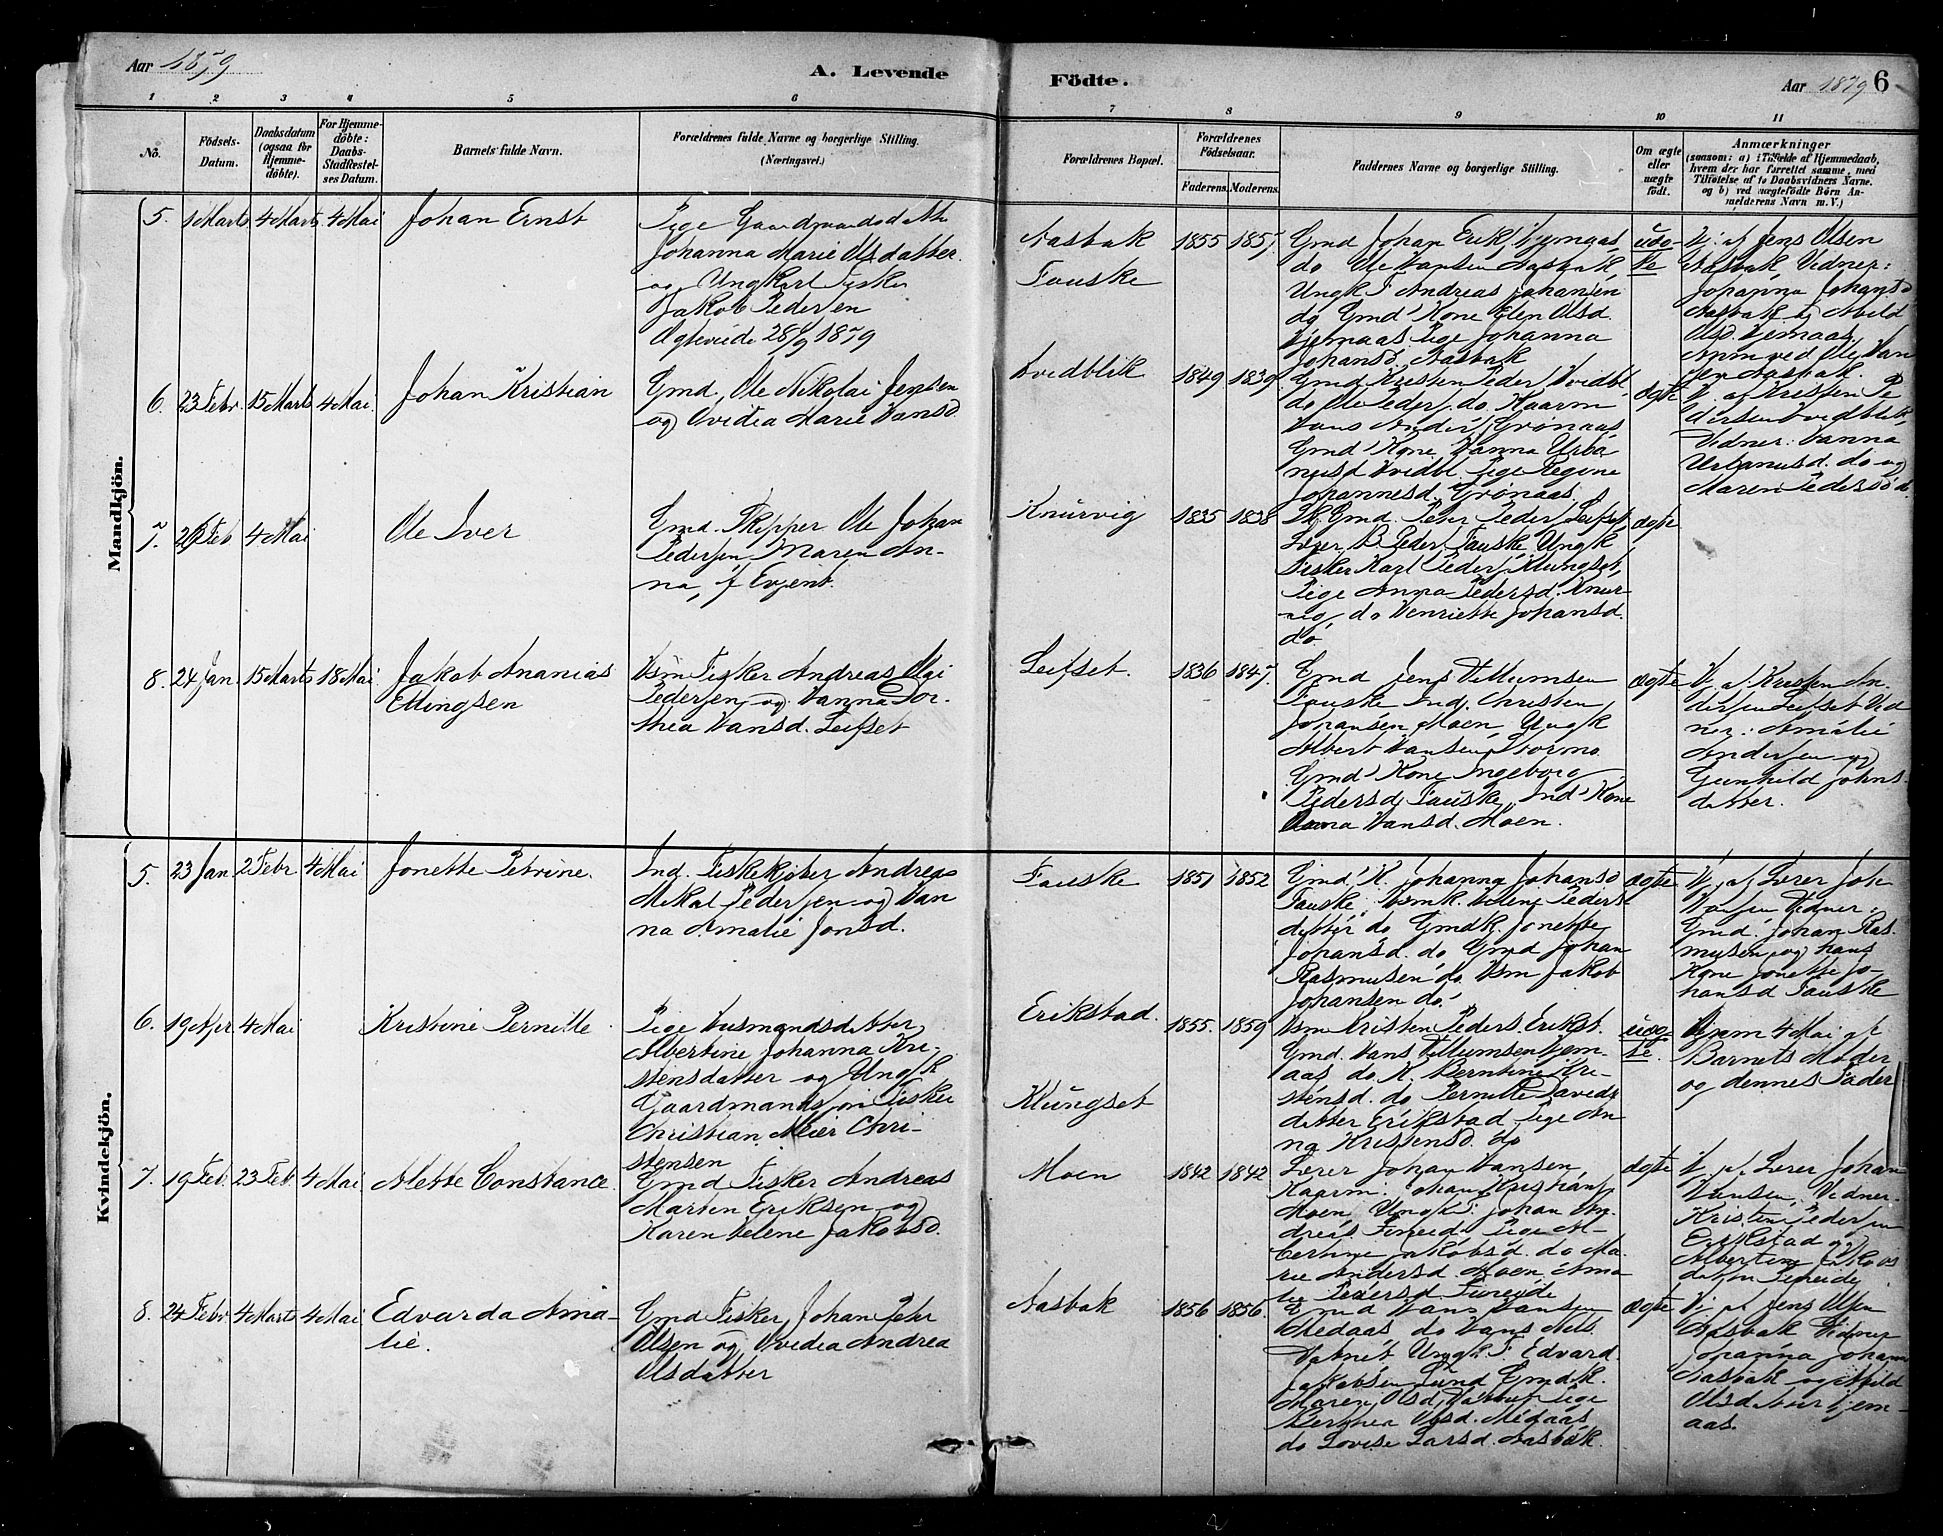 Aar 1879
A. Levende
Födte.
Aar 1879 6
1 2 3 4 5 6 7 8 9 10 11
No.
Födsels-
Datum.
Daabsdatum
(ogsaa for
Hjemme-
döbte).
For Hjemme-
döbte:
Daabs-
Stadfæstel-
ses Datum.
Barnets fulde Navn.
Forældrenes fulde Navne og borgerlige Stilling.
(Næringsvei.)
Forældrenes Bopæl.
Forældrenes
Födselsaar.
Faderens. Moderens.
Faddernes Navne og borgerlige Stilling.
Om ægte
eller
uægte
födt.
Anmærkninger
(saasom: a) i Tilfælde af Hjemmedaab,
hvem der har forrettet samme, med
Tilföielse af to Daabsvidners Navne,
og b) ved uægtefödte Börn An-
melderens Navn m. V.)
Mandkjön.
5. 1 Marts 4 Marts 4 Mai Johan Ernst
Pige Gaardmandsdatter
Johanna Marie Olsdatter
og Ungkarl Fisker
Jakob Pedersen
Ægteviede 28/9 1879
Aasbak
Fauske
1855 1857
Gmd Johan Erik
do Ole Hansen Aasbak,
Ungk F Andreas Johansen
do Gmd Kone Elen Olsd.
Hjemaas Pige Johanna
Johansd. Aasbak
uæg-
te
H. af Jens Olsen
Aasbak, Vidner:
Johanna Johansd
Aasbak og Abild
Olsd. Hjemaas.
Anm ved Ole Han
sen Aasbak.
6. 23 Febr. 15 Marts 4 Mai. Johan Kristian
Gmd, Ole Nikolai Jensen
og Ovidia Marie Hansd.
Hvidblik
1849 1839
Gmd Kristen Peders. Hvidbl.
do Ole Peders. do, Kaarm
Hans Anders. Grønaas,
Gmd Kone Hanna Urba
nusd Hvidbl. Pige Regine
Johannesd. Grønaas.
ægte
H. af Kristen Pe
dersen Hvidblik,
Vidner: Hanna
Urbanusd. do og
Maren Pedersd do
7. 26 Feb 4 Mai Ole Iver
Gmd. Skipper Ole Johan
Pedersen, Maren An-
na, f Evjent.
Knurvig
1835 1838
Sk. Gmd. Peter Peders. Leifset
Lærer B Peders. Fauske, Ungk
Fisker Karl Peders. Klungset,
Pige Anna Pedersd. Knur-
vig, do Henriette Johansd.
do.
ægte
8. 24 Jan. 15 Marts 18 Mai. Jakob Ananias
Ellingsen
Hsm Fisker Andreas Olai
Pedersen og Hanna Dor-
thea Hansd. Leifset
Leifset.
1836 1847.
Gmd Jens Villumsen
Fauske Ind. Christen
Johansen Moen, Ungk
Albert Hansen Stormo
Gmd Kone Ingeborg
Pedersd. Fauske, Ind Kone
Anna Hansd. Moen.
ægte
H. af Kristen An-
dersen Leifset Vid
ner: Amalie
Andersen og
Gunhild Johns-
datter.
Kvindekjön.
5. 23 Jan 2 Febr 4 Mai Jonette Petrine.
Ind. Fiskekjøber Andreas
Mikal Pedersen og Han
na Amalie Jonsd.
Fauske
1851 1852
Gmd K. Johanna Johansd
Fauske, Hsmk. Helene Peders
datter do Gmdk. Jonette
Johansd. do Gmd Johan
Rasmusen do. Hsm Jakob
Johansen do.
ægte
H. af Lærer Joh
Hansen Vidner:
Gmd. Johan Ras-
musen og hans
Kone Jonette Jo-
hansd Fauske
6. 19 Apr 4 Mai Kristine Pernille.
Pige Husmandsdatter
Albertine Johanna Kri-
stensdatter og Ungk
Gaardmandsøn Fisker
Christian Meier Chri-
stensen
Erikstad.
Klungset
1855. 1859
Hsm Kristen Peders. Erikst.
Gmd. Hans Villumsen Hjem-
aas do K. Berntine Kri-
stensd. do Pernille Davids
datter Erikstad Pige An
na Kristensd. do
uæg-
te.
Hjem 4 Mai af
Barnets Moder
og dennes Fader
7. 19 Feb. 23 Feb 4 Mai Alette Constance.
Gmd Fisker Andreas
Martin Eriksen og
Karen Helene Jakobsd.
Moen
1842 1842
Lærer Johan Hansen,
Kaarm. Johan Kristians.
Moen, Ungk. Johan An-
dreas Finneide Pige Al-
bertine Jakobsd. do Ma-
rie Andersd Moen, Ama
lie Pedersd Finneide
ægte
H. af Lærer Johan
Hansen, Vidner.
Kristen Pedersen
Erikstad og
Albertine Jakobs
datter Finneide
8. 24 Febr 4 Marts 4 Mai Edvarda Ama-
lie.
Gmd Fisker Johan Peter
Olsen og Ovidia Andrea
Olsdatter
Aasbak
1856 1856.
Gmd Hans Hansen
do Hans Nils.
Vatnet Ungk. F Edvard
Jakobsen Lund Gmdk.
Maren Olsd. Pige
Olsd. Medaas
do Lovise Larsd. Aasbak.
ægte
H. af Jens Olsen
Aasbak Vidner
Johanna Johans
Aasbak og Abild
Olsdatter Hjem-
aas.